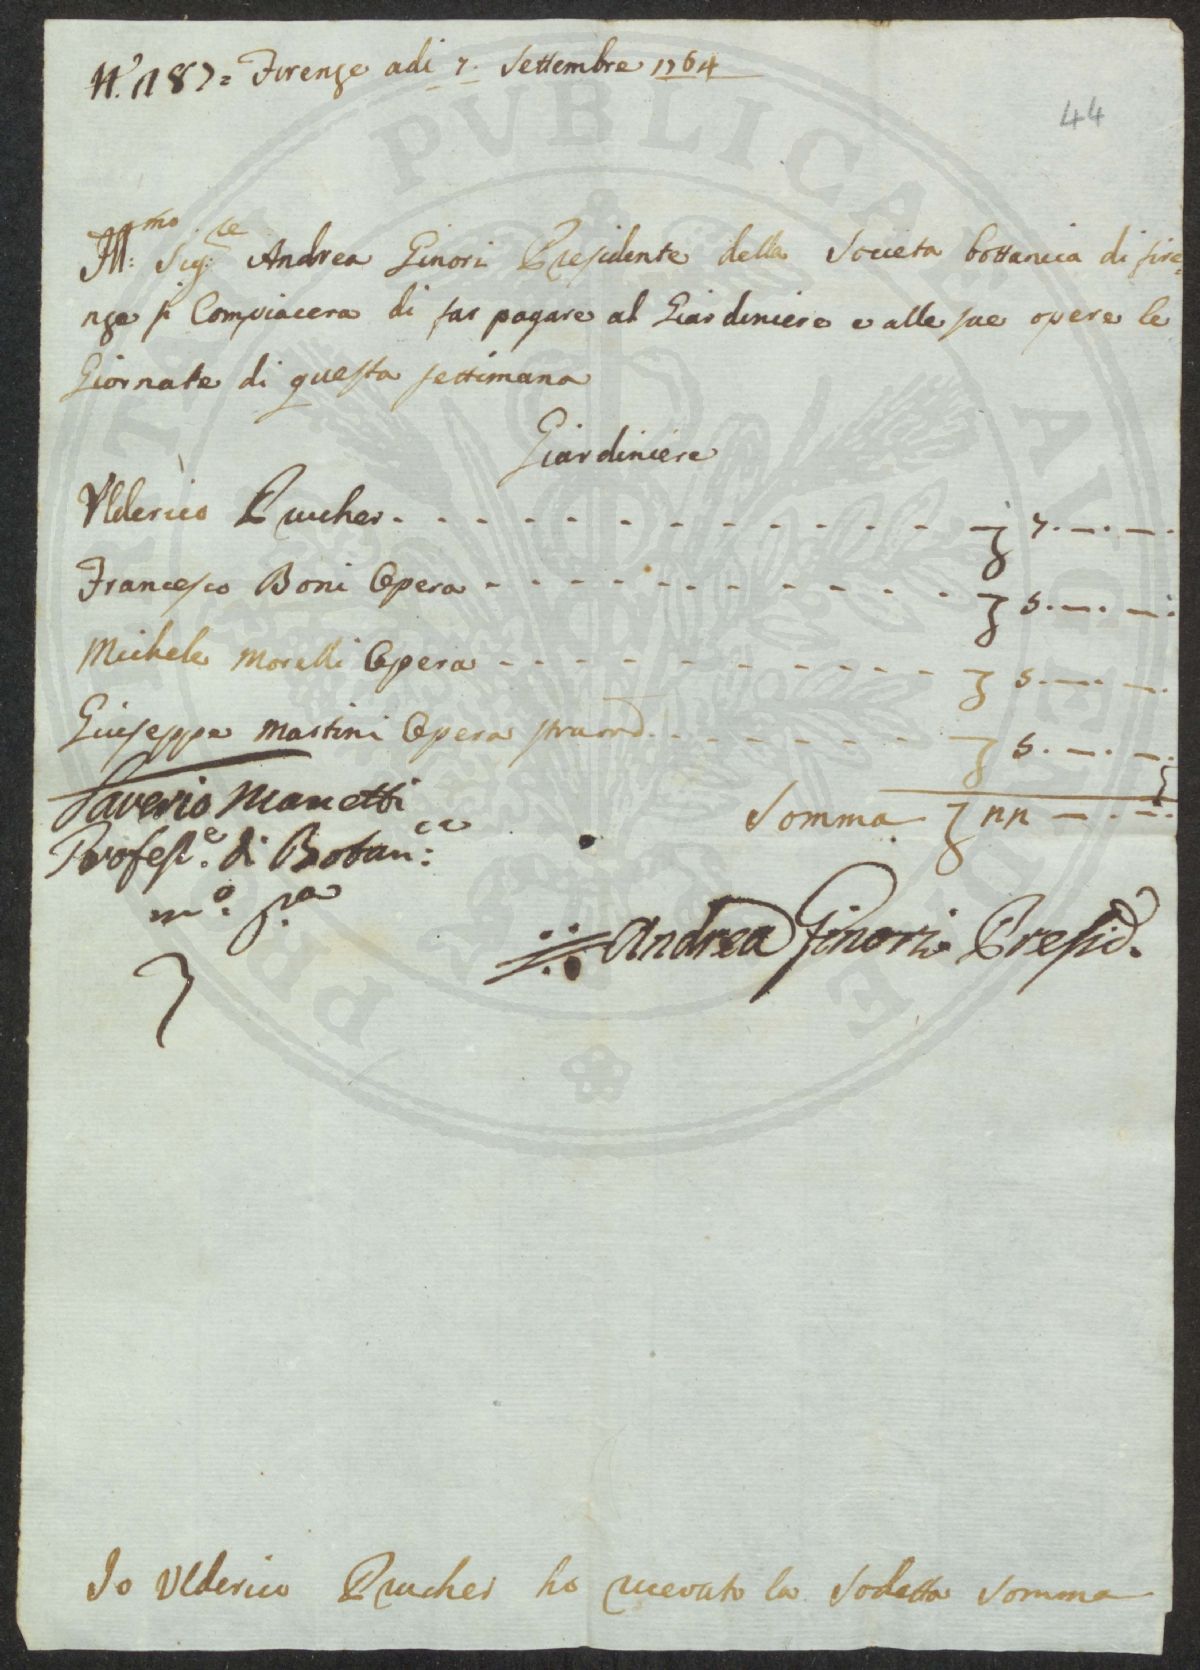 N.° 187= Firenze adi 7. Settembre 1764
44
Ill:mo Sig:re Andrea Ginori Presidente della Societa bottanica di fire=
nze si Compiacera di far pagare al Giardiniere e alle sue opere le
Giornate di questa settimana
Giardiniere
Ulderico Prucher - - - - - - - - - - - 7. —. —.
Francesco Boni Opera - - - - - - - - - - 5. —. —.
Michele Morelli Opera - - - - - - - - - - 5. —. —.
Giuseppe Martini Opera straord. - - - - - - 5. —. —.
Saverio Manetti
Profess.e di Botan:ca
m.o p.a
Somma 22 —. —.
Andrea Ginori Presid.
Io Ulderico Prucher ho ricevuto la Sodetta Somma
PVBLICAE